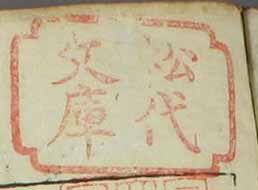 松代
文庫